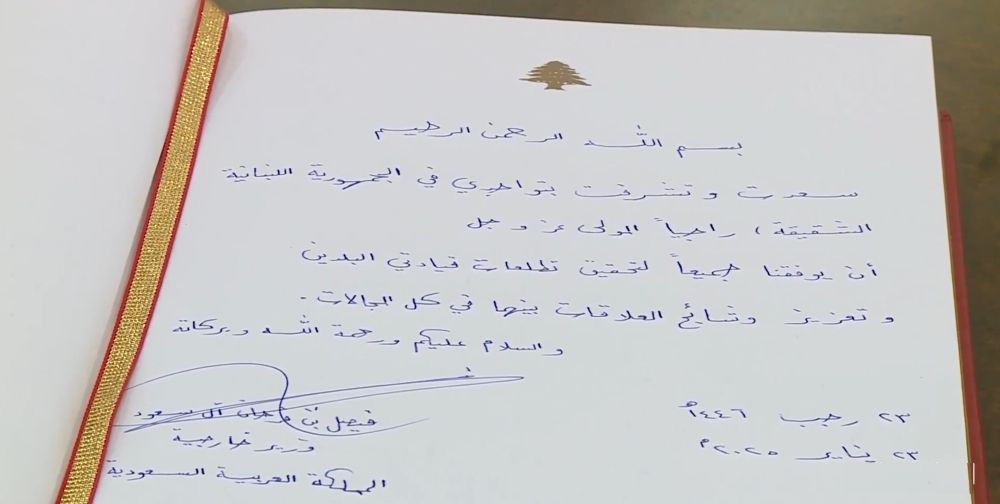 بسم الله الرحمن الرحيم
سعدت وتشرفت بتواجدي في الجمهورية اللبنانية
الشقيقة، راجياً المولى عز وجل
أن يوفقنا جميعاً لتحقيق تطلعات قيادتي البلدين
وتعزيز وشائج العلاقات بينها في كل المجالات.
والسلام عليكم ورحمة الله وبركاته
فيصل بن فرحان آل سعود
وزير خارجية
المملكة العربية السعودية
٢٣ رجب ١٤٤٦هـ
٢٣ يناير ٢٠٢٥م